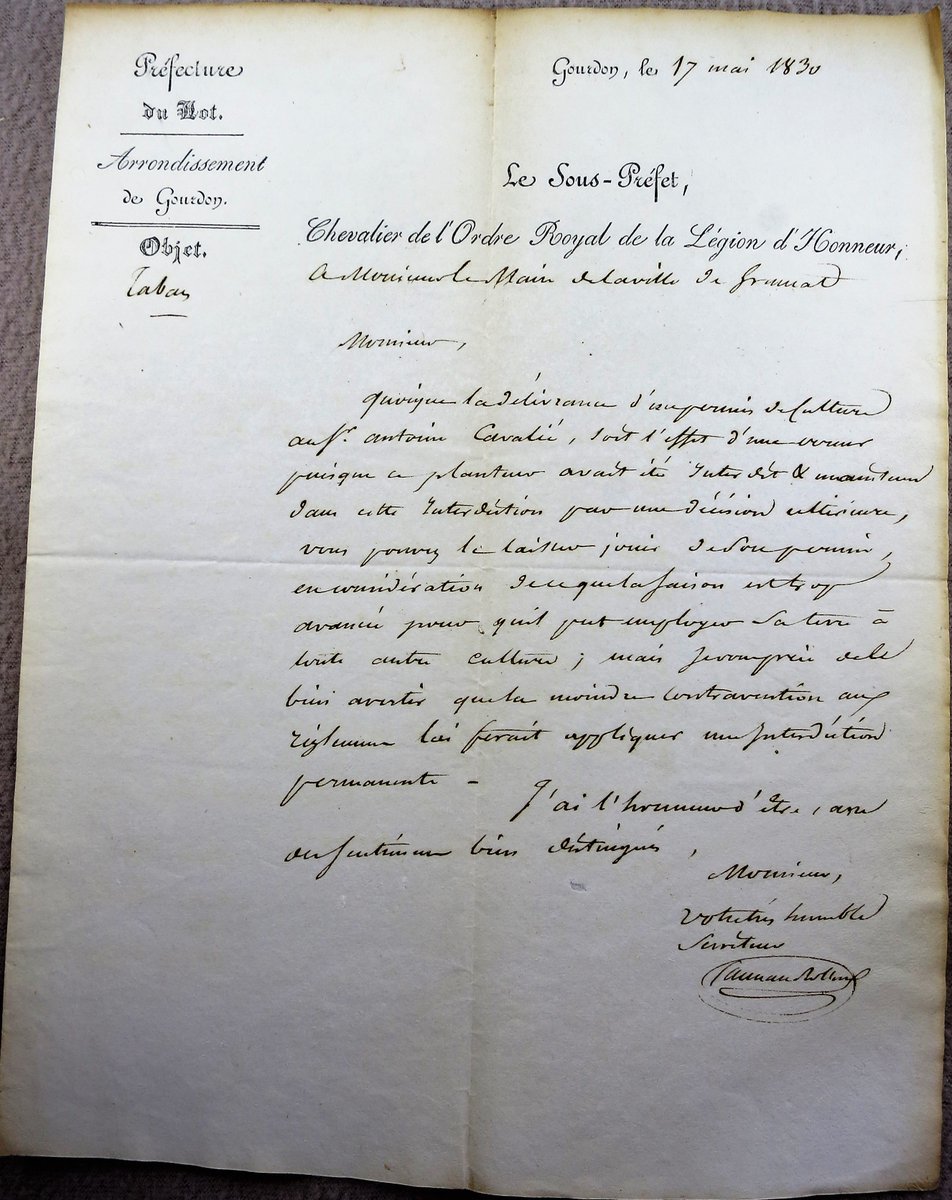 Préfecture
du Lot.
Arrondissement
de Gourdon.
Objet.
Tabac
Gourdon, le 17 mai 1830
Le Sous-Préfet,
Chevalier de l'Ordre Royal de la Légion d'Honneur,
A Monsieur le Maire de la ville de Gramat
Monsieur,
quoique la délivrance d'un permis de Culture
au Sr. antoine Cavalié, soit l'effet d'une erreur
puisque ce planteur avait été Interdit & maintenu
dans cette Interdiction par une décision ultérieure,
vous pouvez le laisser jouir de son permis,
en considération de ce que la saison est trop
avancée pour qu'il put employer sa terre à
toute autre culture ; mais je vous prie de le
bien avertir que la moindre contravention aux
règlemens lui ferait appliquer une Interdiction
permanente -
J'ai l'honneur d'être, avec
des sentimens bien distingués,
Monsieur,
votre très humble
Serviteur